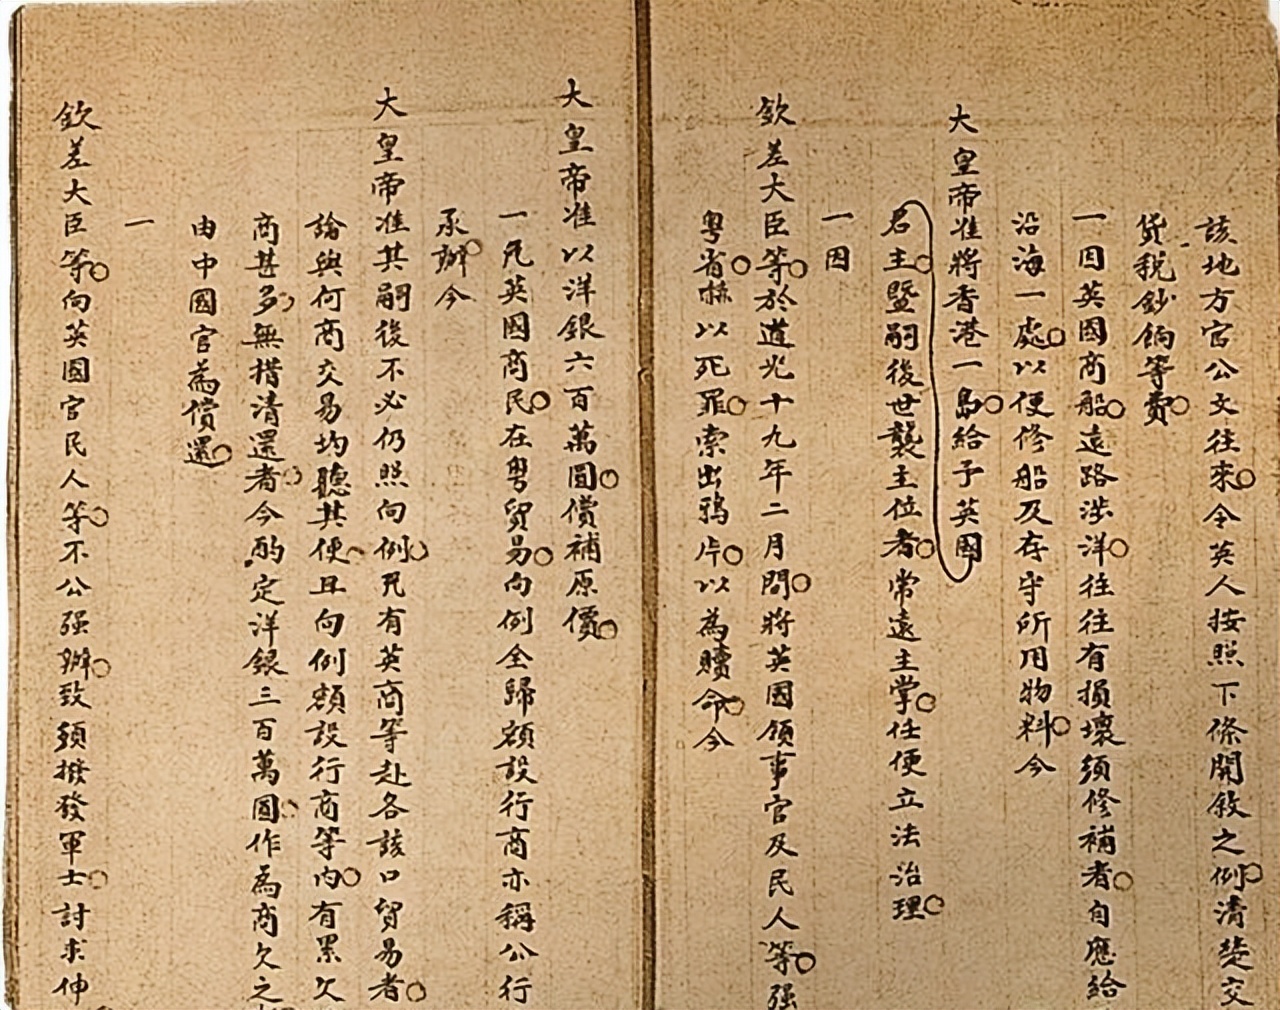 該地方官公文往來令英人按照下條開敘之例清楚交
貨稅鈔餉等費
一因英國商船遠路涉洋往往有損壞須修補者自應給
沿海一處以便修船及存守所用物料今
大皇帝准將香港一島給予英國
君主暨嗣後世襲主位者常遠主掌任便立法治理
一因
欽差大臣等於道光十九年二月間將英國領事官及民人等強
粵省嚇以死罪索出鴉片以為贖命今
大皇帝准以洋銀六百萬圓償補原價
一凡英國商民在粵貿易向例全歸額設行商亦稱公行
承辦今
大皇帝准其嗣後不必仍照向例凡有英商等赴各該口貿易者
論與何商交易均聽其便且向例額設行商等內有累欠
商甚多無措清還者今酌定洋銀三百萬圓作為商欠之
由中國官為償還
一
欽差大臣等向英國官民人等不公強辦致須撥發軍士討求伸